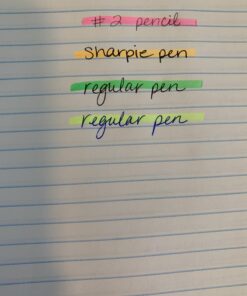 #2 pencil
Sharpie pen
regular pen
regular pen